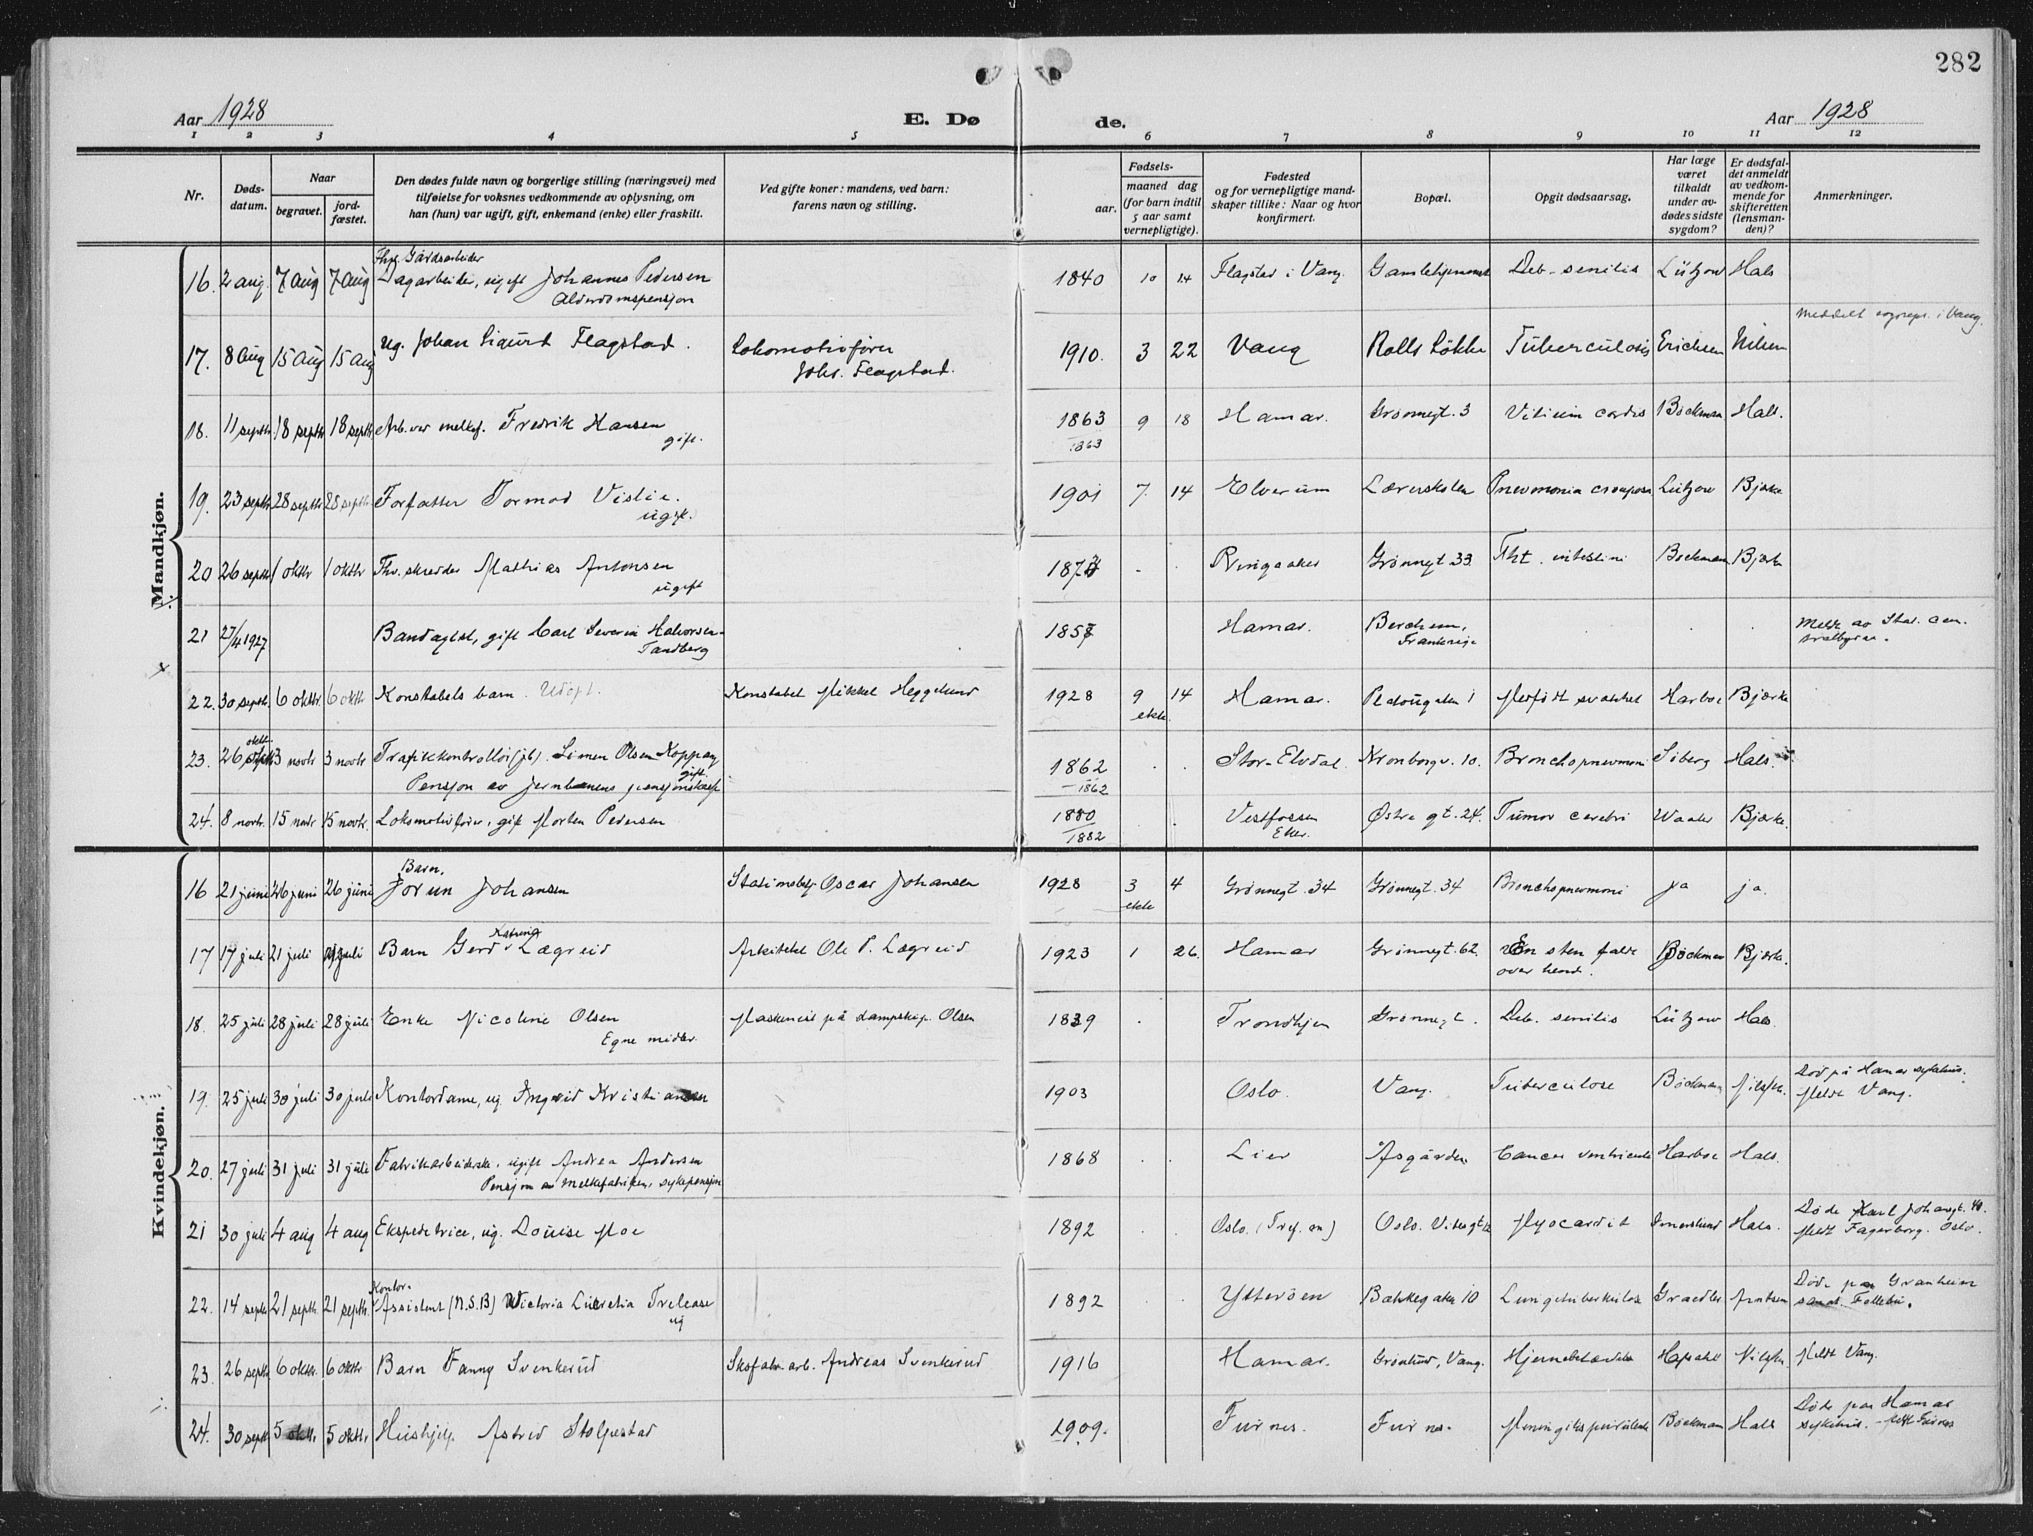 282
Aar 1928
E. Dø
de.
Aar 1928
1 2 3 4 5 6 7 8 9 10 11 12
Nr.
Døds-
datum.
Naar
begravet.
jord-
fæstet.
Den dødes fulde navn og borgerlige stilling (næringsvei) med
tilføielse for voksnes vedkommende av oplysning, om
han (hun) var ugift, gift, enkemand (enke) eller fraskilt.
Ved gifte koner: mandens, ved barn:
farens navn og stilling.
Fødsels-
aar.
maaned dag
(for barn indtil
5 aar samt
vernepligtige).
Fødested
og for vernepligtige mand-
skaper tillike: Naar og hvor
konfirmert.
Bopæl.
Opgit dødsaarsag.
Har læge
været
tilkaldt
under av-
dødes sidste
sygdom?
Er dødsfal-
det anmeldt
av vedkom-
mende for
skifteretten
(lensman-
den)?
Anmerkninger.
Mandkjøn.
Gårdsarbeider
16. 2 aug. 7 Aug 7 Aug Dagarbeider, ugift Johannes Pedersen 1840 10 14 Flagstad i Vang. Gamlehjemmet Deb. senilis Lützow Hals
Alderdomspensjon
i Vang.
17. 8 Aug 15 Aug 15 Aug ug. Johan Sigurd Flagstad. Lokomotivfører 1910. 3 22 Vang Rolls Løkke Tuberculosis Erichsen Nilsen
Johs. Flagstad.
18. 11 septbr. 18 septbr 18 septbr Arb. ved melkef. Fredrik Hansen 1863 9 18 Hamar. Grønnegt. 3 Vitium cordis Bøckman Hals.
gift. 1863
19. 23 septbr 28 septbr 28 septbr Forfatter Tormod Vislie. 1901 7. 14 Elverum Lærerskolen Pneumonia crouposa Lützow Bjørke
ugift.
20 26 septbr 1 oktbr 1 oktbr Fhv. skredder Mathias Antonsen 187 . . Ringsaker Grønnegt. 33. Tbt. intestini Bøckman Bjørke
ugift
21 27/4 1927 Bandagist, gift Carl Severin Halvorsen- 185 Hamar. Berchem, . . . Meldt av Stat. cen-
Tandberg Frankrige tralbyraa.
22. 30 septbr. 6 oktbr. 6 oktbr Konstabels barn. Udøpt. Konstabel Mikkel Heggelund 1928 9 14 Hamar. 1 Medfødt svakhet Harboe Bjørke
ekte.
oktbr.
23. 26 3 novbr 3 novbr Trafikkontrollør (jb). Simen Olsen Koppang 1862 . . Stor-Elvdal. Kronborgv. 10. Bronchopneumoni Siberg Hals.
gift.
Pensjon av jernbanens pensjonskasse 1862
24. 8 novbr. 15 novbr 15 novbr. Lokomotivfører, gift Morten Pedersen 1880 . . Vestfossen Østre gt. 24. Tumor cerebri Waaler Bjørke.
1882 Eker.
Kvindekjøn.
Barn,
16 21 juni 26 juni 26 juni Jorun Johansen Stasjonsbetj. Oscar Johansen 1928 3 4 Grønnegt. 34 Grønnegt. 34 Bronchopneumoni ja ja.
ekte
Katrine
17 17 juli 21 juli 21 juli Barn Gerd Lægreid Arkitekt Ole P. Lægreid 1923 1 26. Hamar Grønnegt. 62. En sten faldt Bøckman Bjørke.
over hende.
18. 25 juli 28 juli 28 juli Enke Nicoline Olsen Maskinist på dampskip. Olsen 1839 . Trondhjem Grønnegt. Deb. senilis Lützow Hals.
Egne midler.
19. 25 juli 30 juli 30 juli Kontordame, ug. Ingrid Kristiansen 1903 Oslo. Vang. Tuberculose Bøckman Nilsen. Død på Hamar sykehus.
Meldt Vang.
20. 27 juli 31 juli 31 juli Fabrikarbeiderske, ugift Andrea Andersen 1868 . . Lier Åsgården Cancer ventriculi Harboe Hals.
Pensjon av melkefabriken, sykepensjon
21 30 juli 4 aug 4 aug Ekspeditrice, ug. Louise Moe 1892 . . Oslo. Oslo. Myocardit Hals. Døde Karl Johansgt. 40.
Meldt Fagerborg. Oslo.
Kontor-
22. 14 septbr 21 septbr. 21 septbr. Assistent (N.S.B) Victoria Lucretia Trelease 1892 . . Ytterøen Bakkegaten 10 Lungetuberkulose Døde paa Granheim
ug sanat. Follebu.
23. 26 septbr 6 oktbr. 6 oktbr Barn Fanny Svenkerud Skofabr. arb. Andreas Svenkerud 1916 Hamar. Grønlund, Vang. Hjernebetændelse Meldt Vang.
24. 30 septbr 5 oktbr. 5 oktbr. Hushjelp Astrid Stolpestad 1909. Furnes. Furnes. Meningitis purulenta Bøckman Hals Døde paa Hamar
sykehus. Meldt Furnes